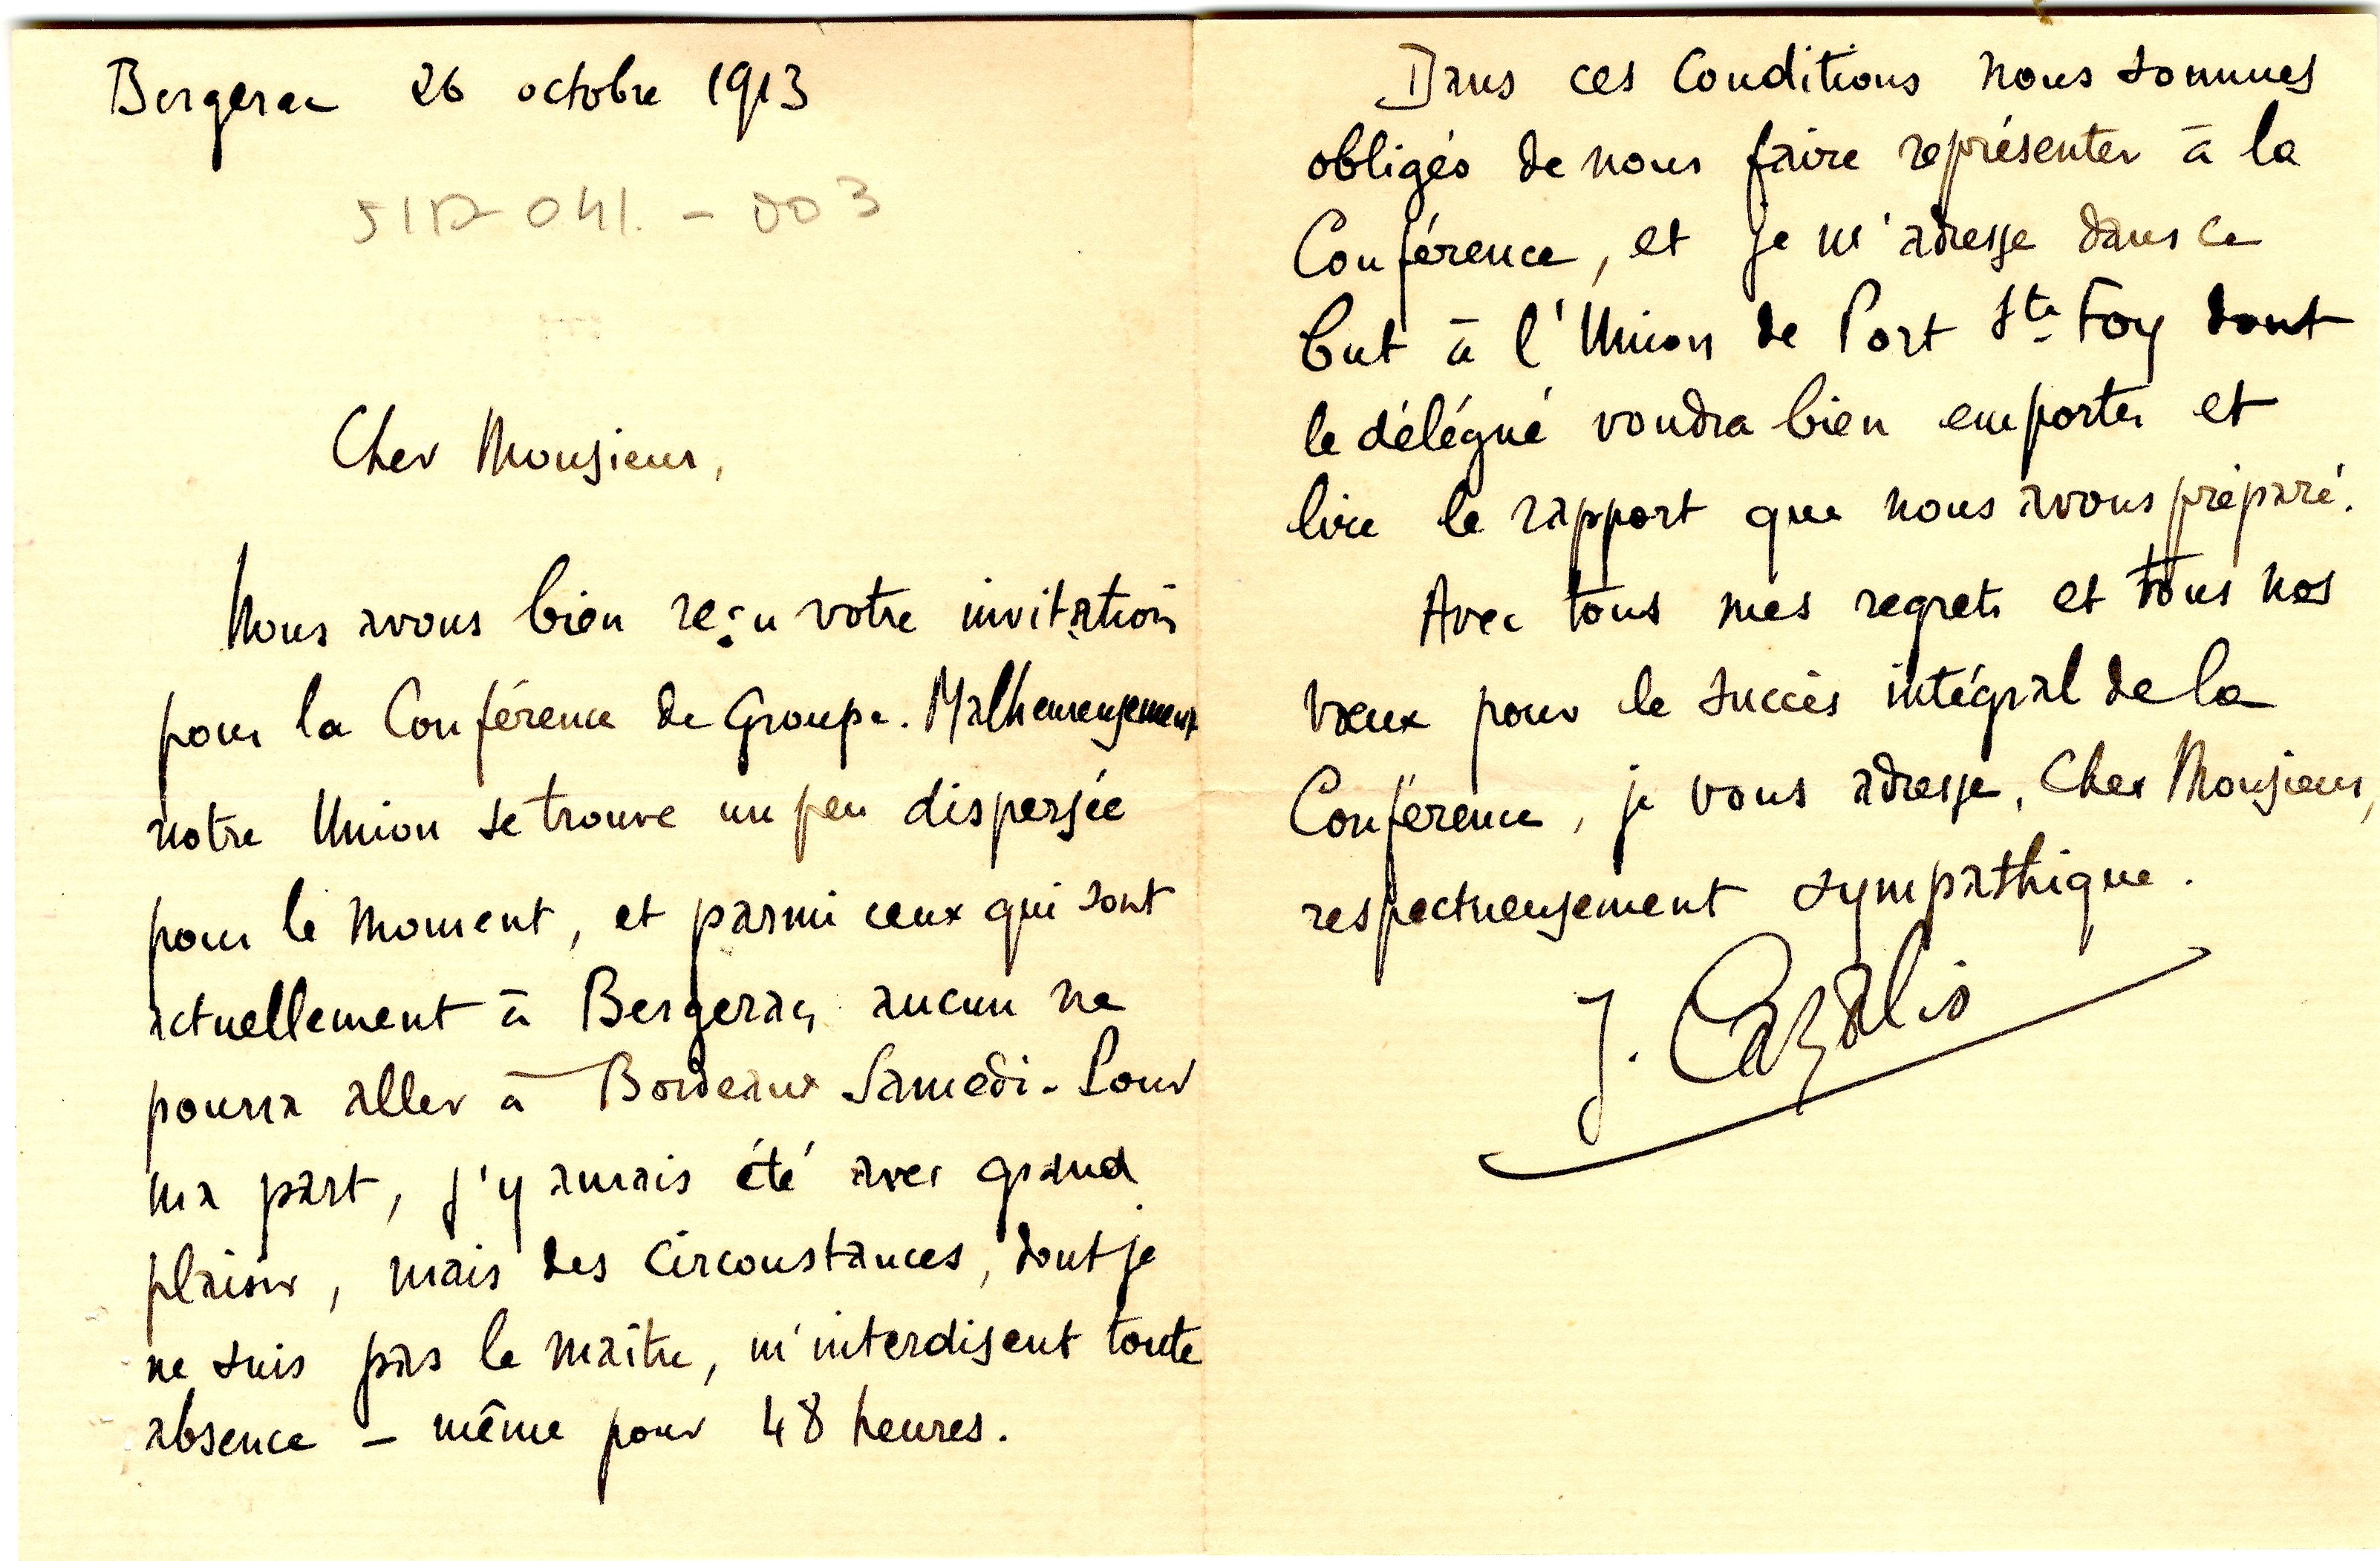 Bergerac 26 octobre 1913
Cher Monsieur,
Nous avons bien reçu votre invitation
pour la Conférence de Groupe. Malheureusement
notre Union se trouve un peu dispersée
pour le moment, et parmi ceux qui sont
actuellement à Bergerac, aucun ne
pourra aller à Bordeaux Samedi. Pour
ma part, j'y aurais été avec grand
plaisir, mais des circonstances, dont je
ne suis pas le maître, m'interdisent toute
absence – même pour 48 heures.
Dans ces conditions nous sommes
obligés de nous faire représenter à la
Conférence, et je m'adresse dans ce
but à l'Union de Port Ste Foy dont
le délégué voudra bien emporter et
lire le rapport que nous avons préparé.
Avec tous mes regrets et tous nos
vœux pour le succès intégral de la
Conférence, je vous adresse, Cher Monsieur,
respectueusement sympathique.
J. Cazalis